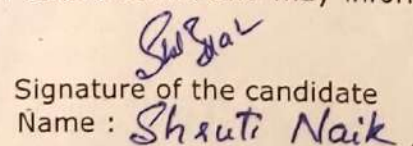 Signature of the candidate
Name : Shruti Naik